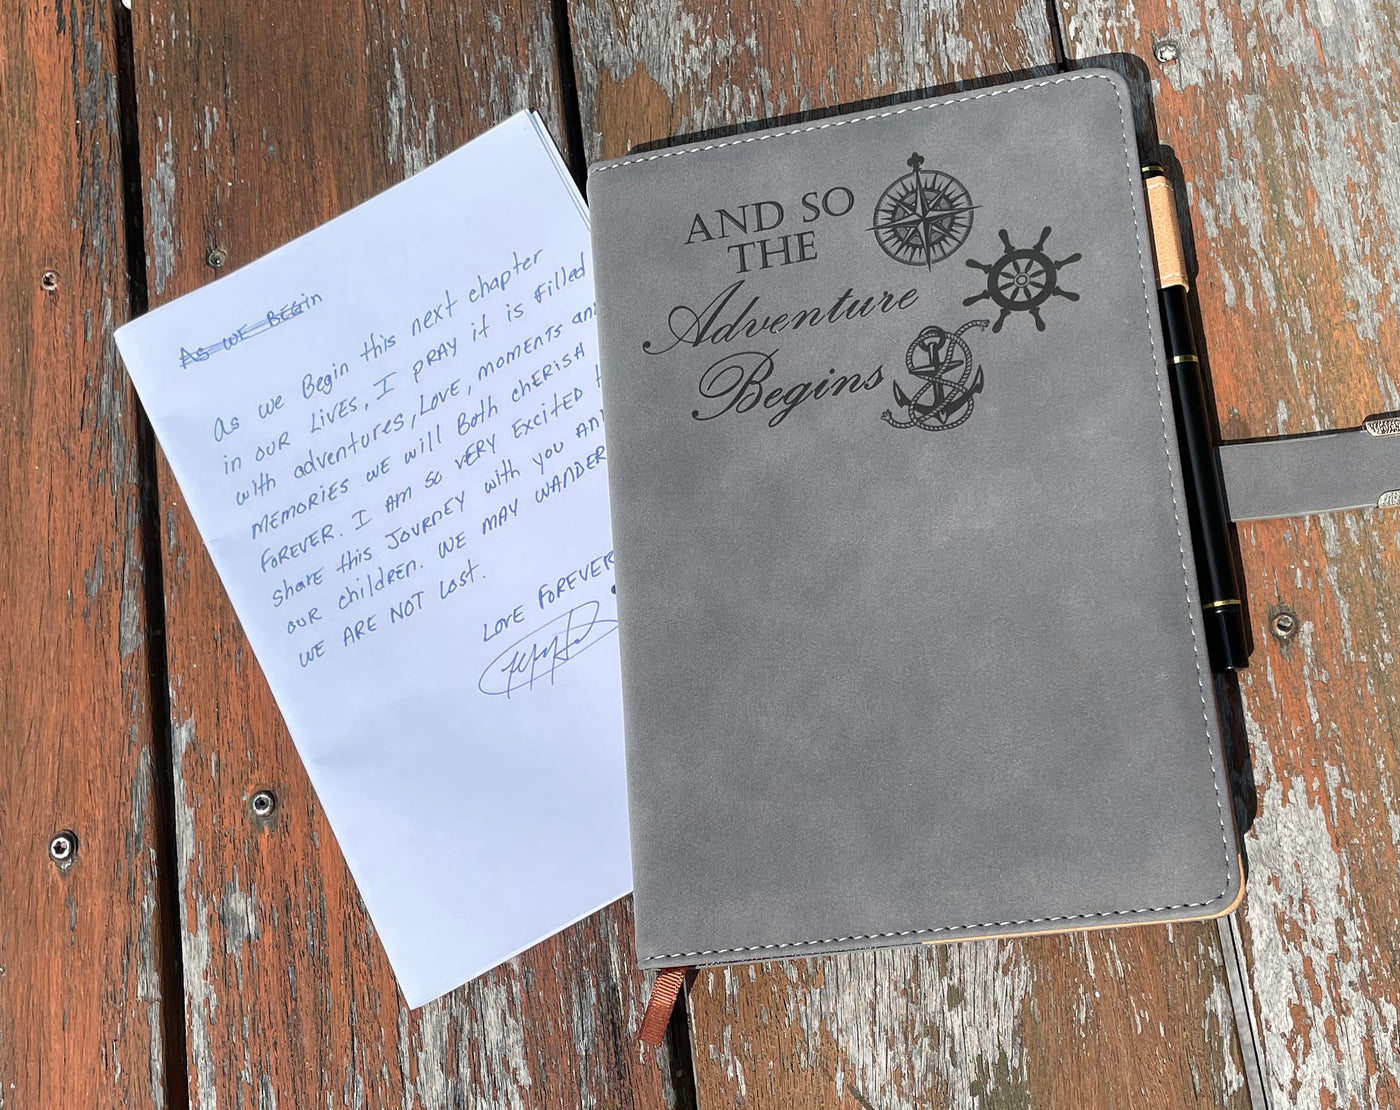 As we BEGin
as we Begin this next chapter
in our LIVES, I pRAY it is filled
with adventures, Love, moments and
MEMORIES we will Both cherish
FOREVER. I Am so vERY Excited
share this JOURNEY with you AND
our children. WE MAY WANDER
WE ARE NOT Lost.
LOVE FOREVER
AND SO
THE
Adventure
Begins